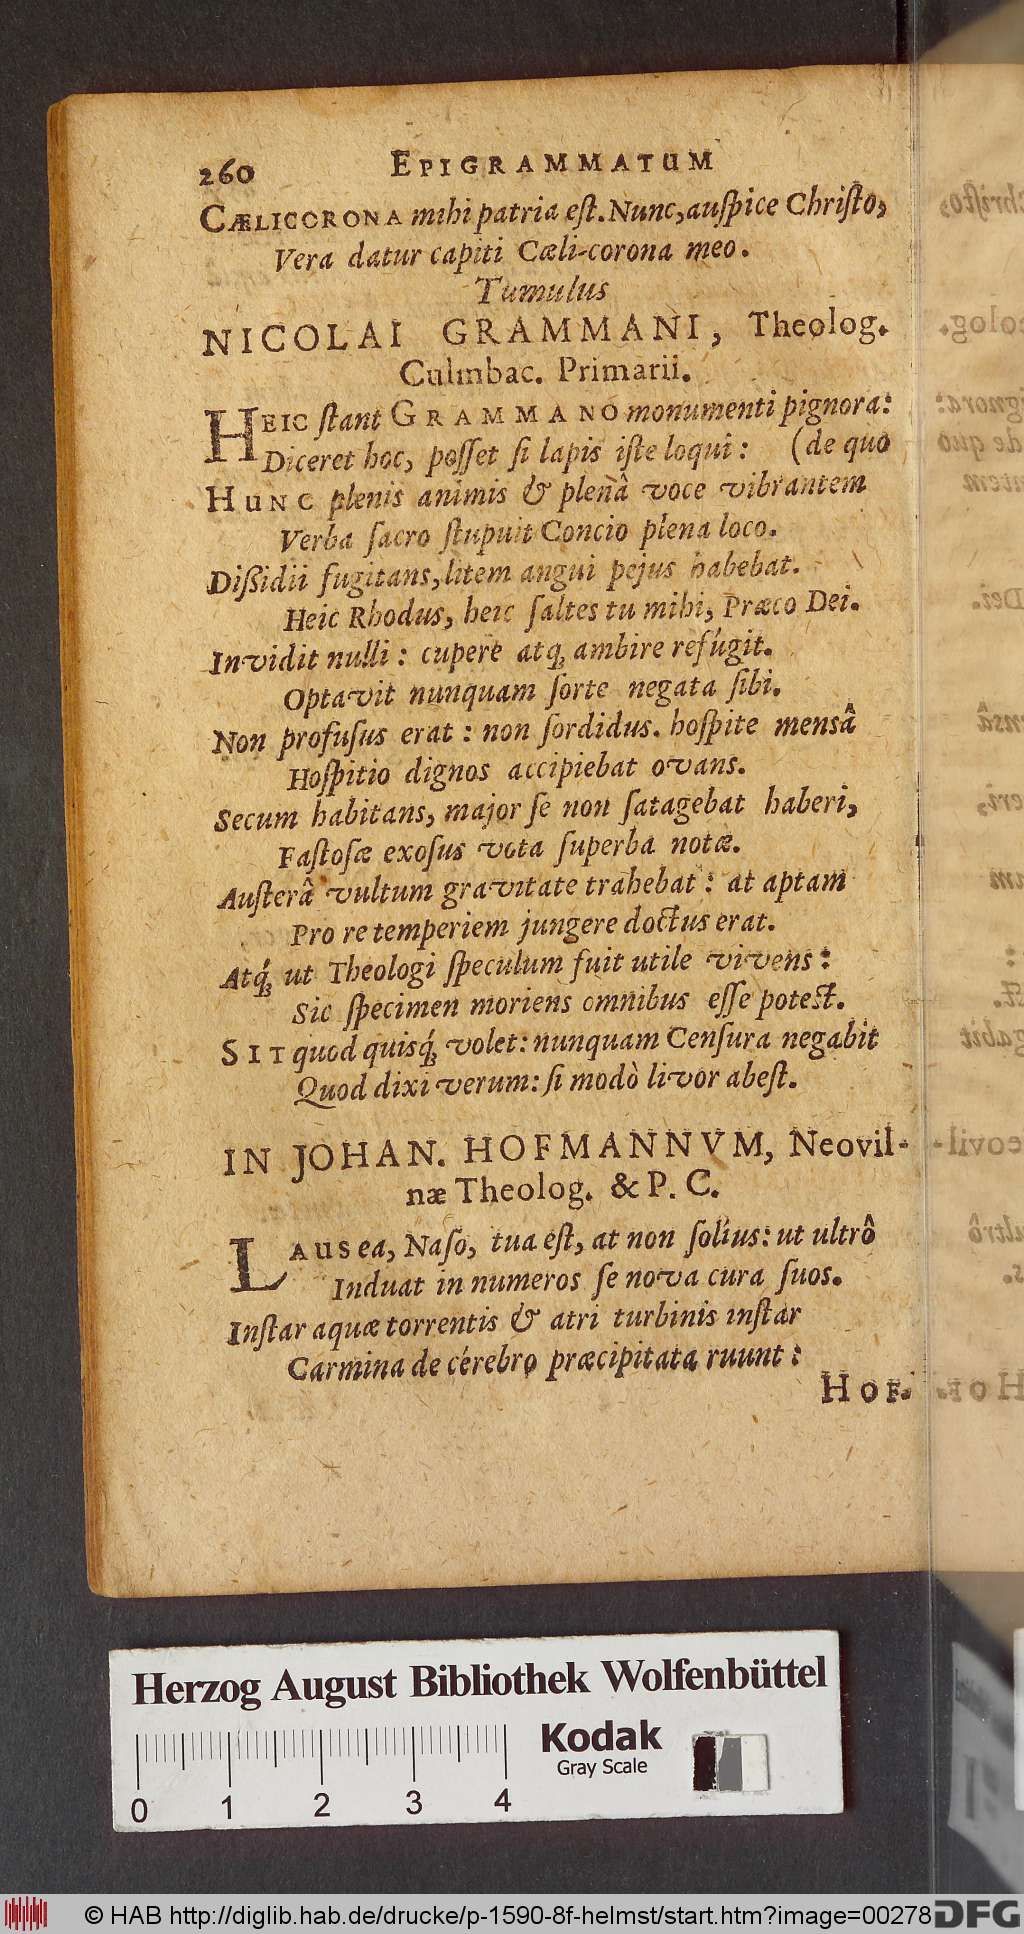 260 EPIGRAMMATUM
CÆLICORONA mihi patria eſt. Nunc, auſpice Chriſto,
Vera datur capiti Cæli-corona meo.
Tumulus
NICOLAI GRAMMANI, Theolog.
Culmbac. Primarii.
HEIC ſtant GRAMMANO monumenti pignora:
Diceret hoc, poſſet ſi lapis iſte loqui: (de quo
HUNC plenis animis & plenâ voce vibrantem
Verba ſacro ſtupuit Concio plena loco.
Diſsidii fugitans, litem angui pejus habebat.
Heic Rhodus, heic ſaltes tu mihi, Præco Dei.
Invidit nulli: cupere atq; ambire refúgit.
Optavit nunquam ſorte negata ſibi.
Non profuſus erat: non ſordidus. hoſpite mensâ
Hoſpitio dignos accipiebat ovans.
Secum habitans, major ſe non ſatagebat haberi,
Faſtoſæ exoſus vota ſuperba notæ.
Auſterâ vultum gravitate trahebat: at aptam
Pro re temperiem jungere doctus erat.
Atq́; ut Theologi ſpeculum fuit utile vivens:
Sic ſpecimen moriens omnibus eſſe poteſt.
SIT quod quisq́; volet: nunquam Cenſura negabit
Quod dixi verum: ſi modò livor abeſt.
IN JOHAN. HOFMANNVM, Neovil-
næ Theolog. & P. C.
LAUS ea, Naſo, tua eſt, at non ſolius: ut ultrô
Induat in numeros ſe nova cura ſuos.
Inſtar aquæ torrentis & atri turbinis inſtar
Carmina de cérebro præcipitata ruunt:
HOF.
Herzog August Bibliothek Wolfenbüttel
Kodak
Gray Scale
0 1 2 3 4
© HAB http://diglib.hab.de/drucke/p-1590-8f-helmst/start.htm?image=00278
DFG